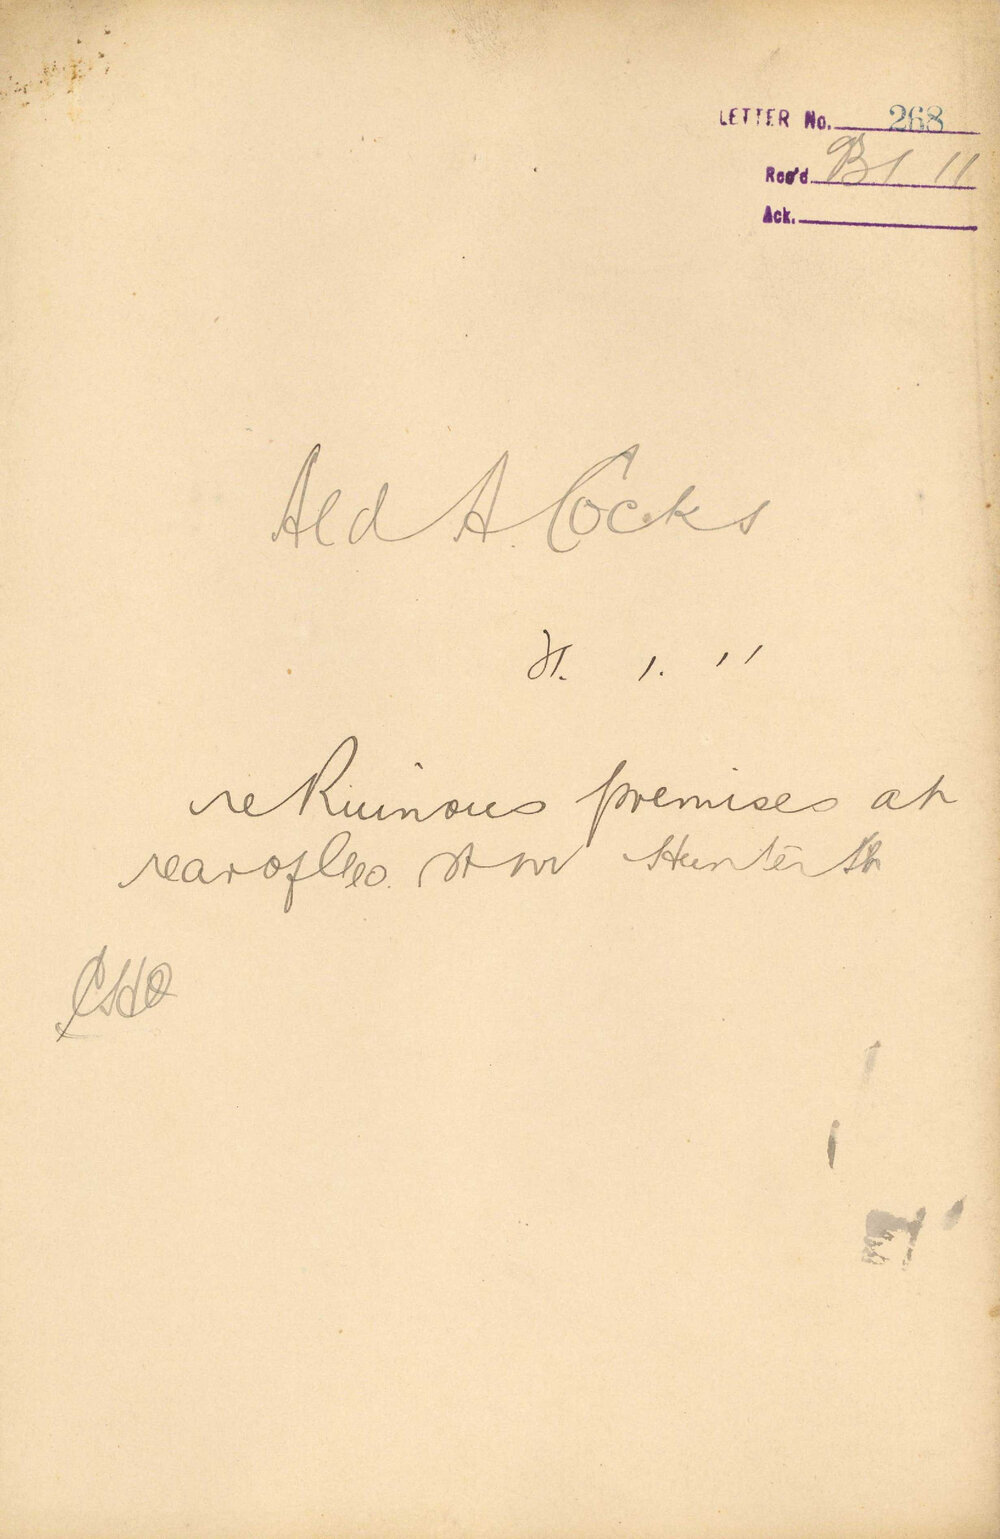 LETTER No. 268
Rec'd 11
Ack.
Ald A. Cocks
1. 11
re Ruinous premises at
rear of Geo. St nr Hunter St
CHO